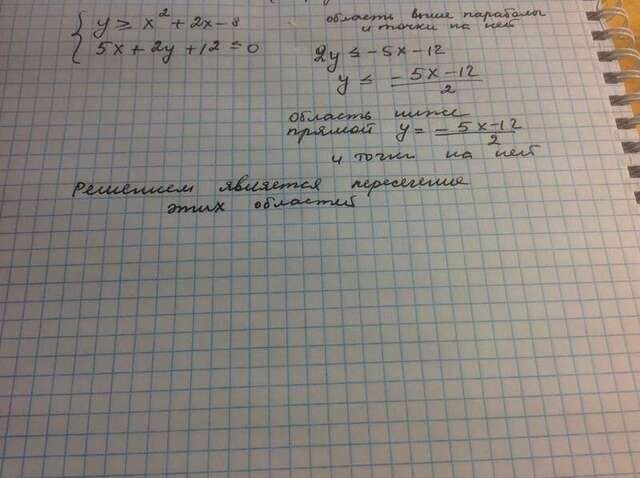 y ≥ x² + 2x - 8
5x + 2y + 12 ≤ 0
область выше параболы
и точки на ней
2y ≤ -5x - 12
y ≤ (-5x - 12)/2
область ниже
прямой y = (-5x - 12)/2
и точки на ней
Решением является пересечение
этих областей